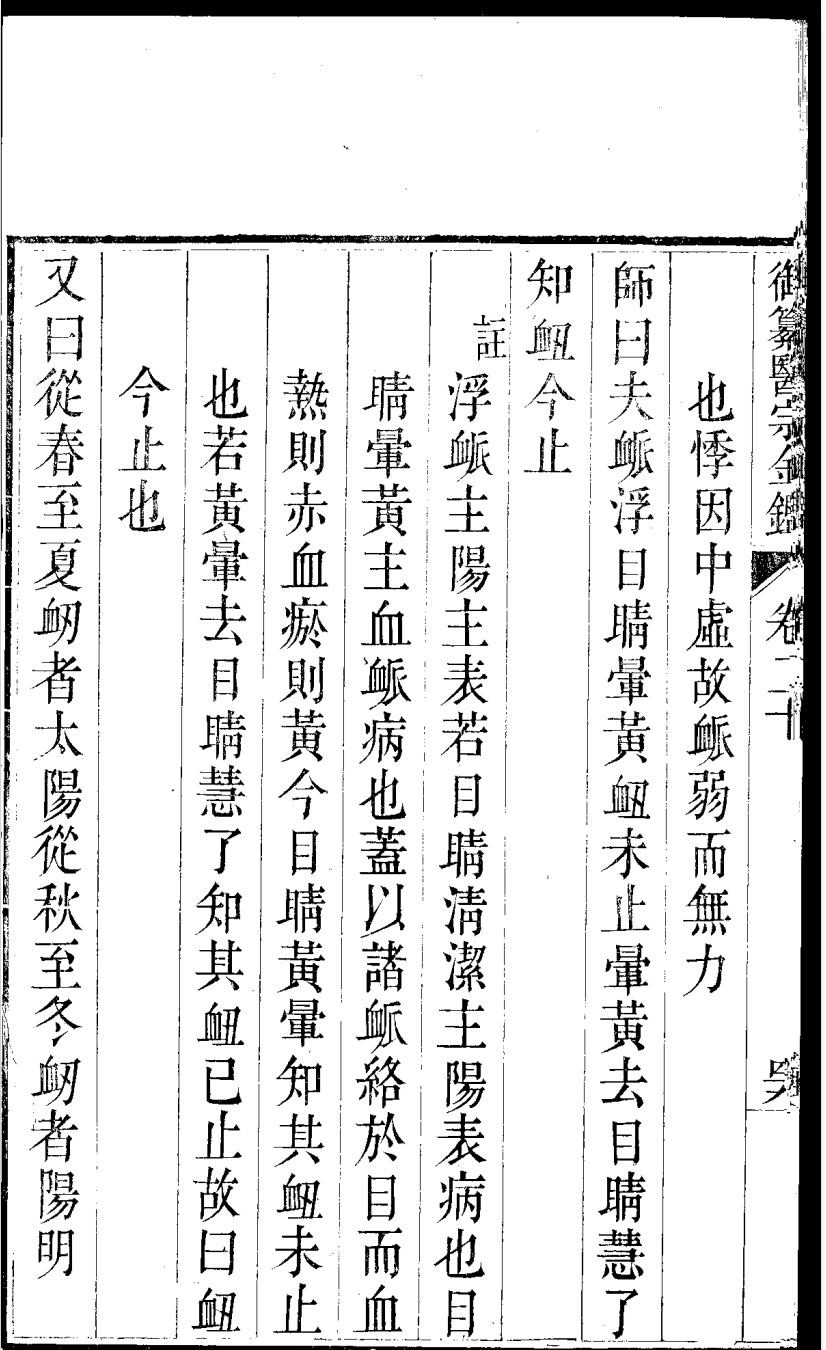 御纂醫宗金鑑 卷二十
也悸因中虛故衇弱而無力
師曰夫衇浮目睛暈黃衂未止暈黃去目睛慧了
知衂今止
註浮衇主陽主表若目睛清潔主陽表病也目
睛暈黃主血衇病也蓋以諸衇絡於目而血
熱則赤血瘀則黃今目睛黃暈知其衂未止
也若黃暈去目睛慧了知其衂已止故曰衂
今止也
又曰從春至夏衂者太陽從秋至冬衂者陽明